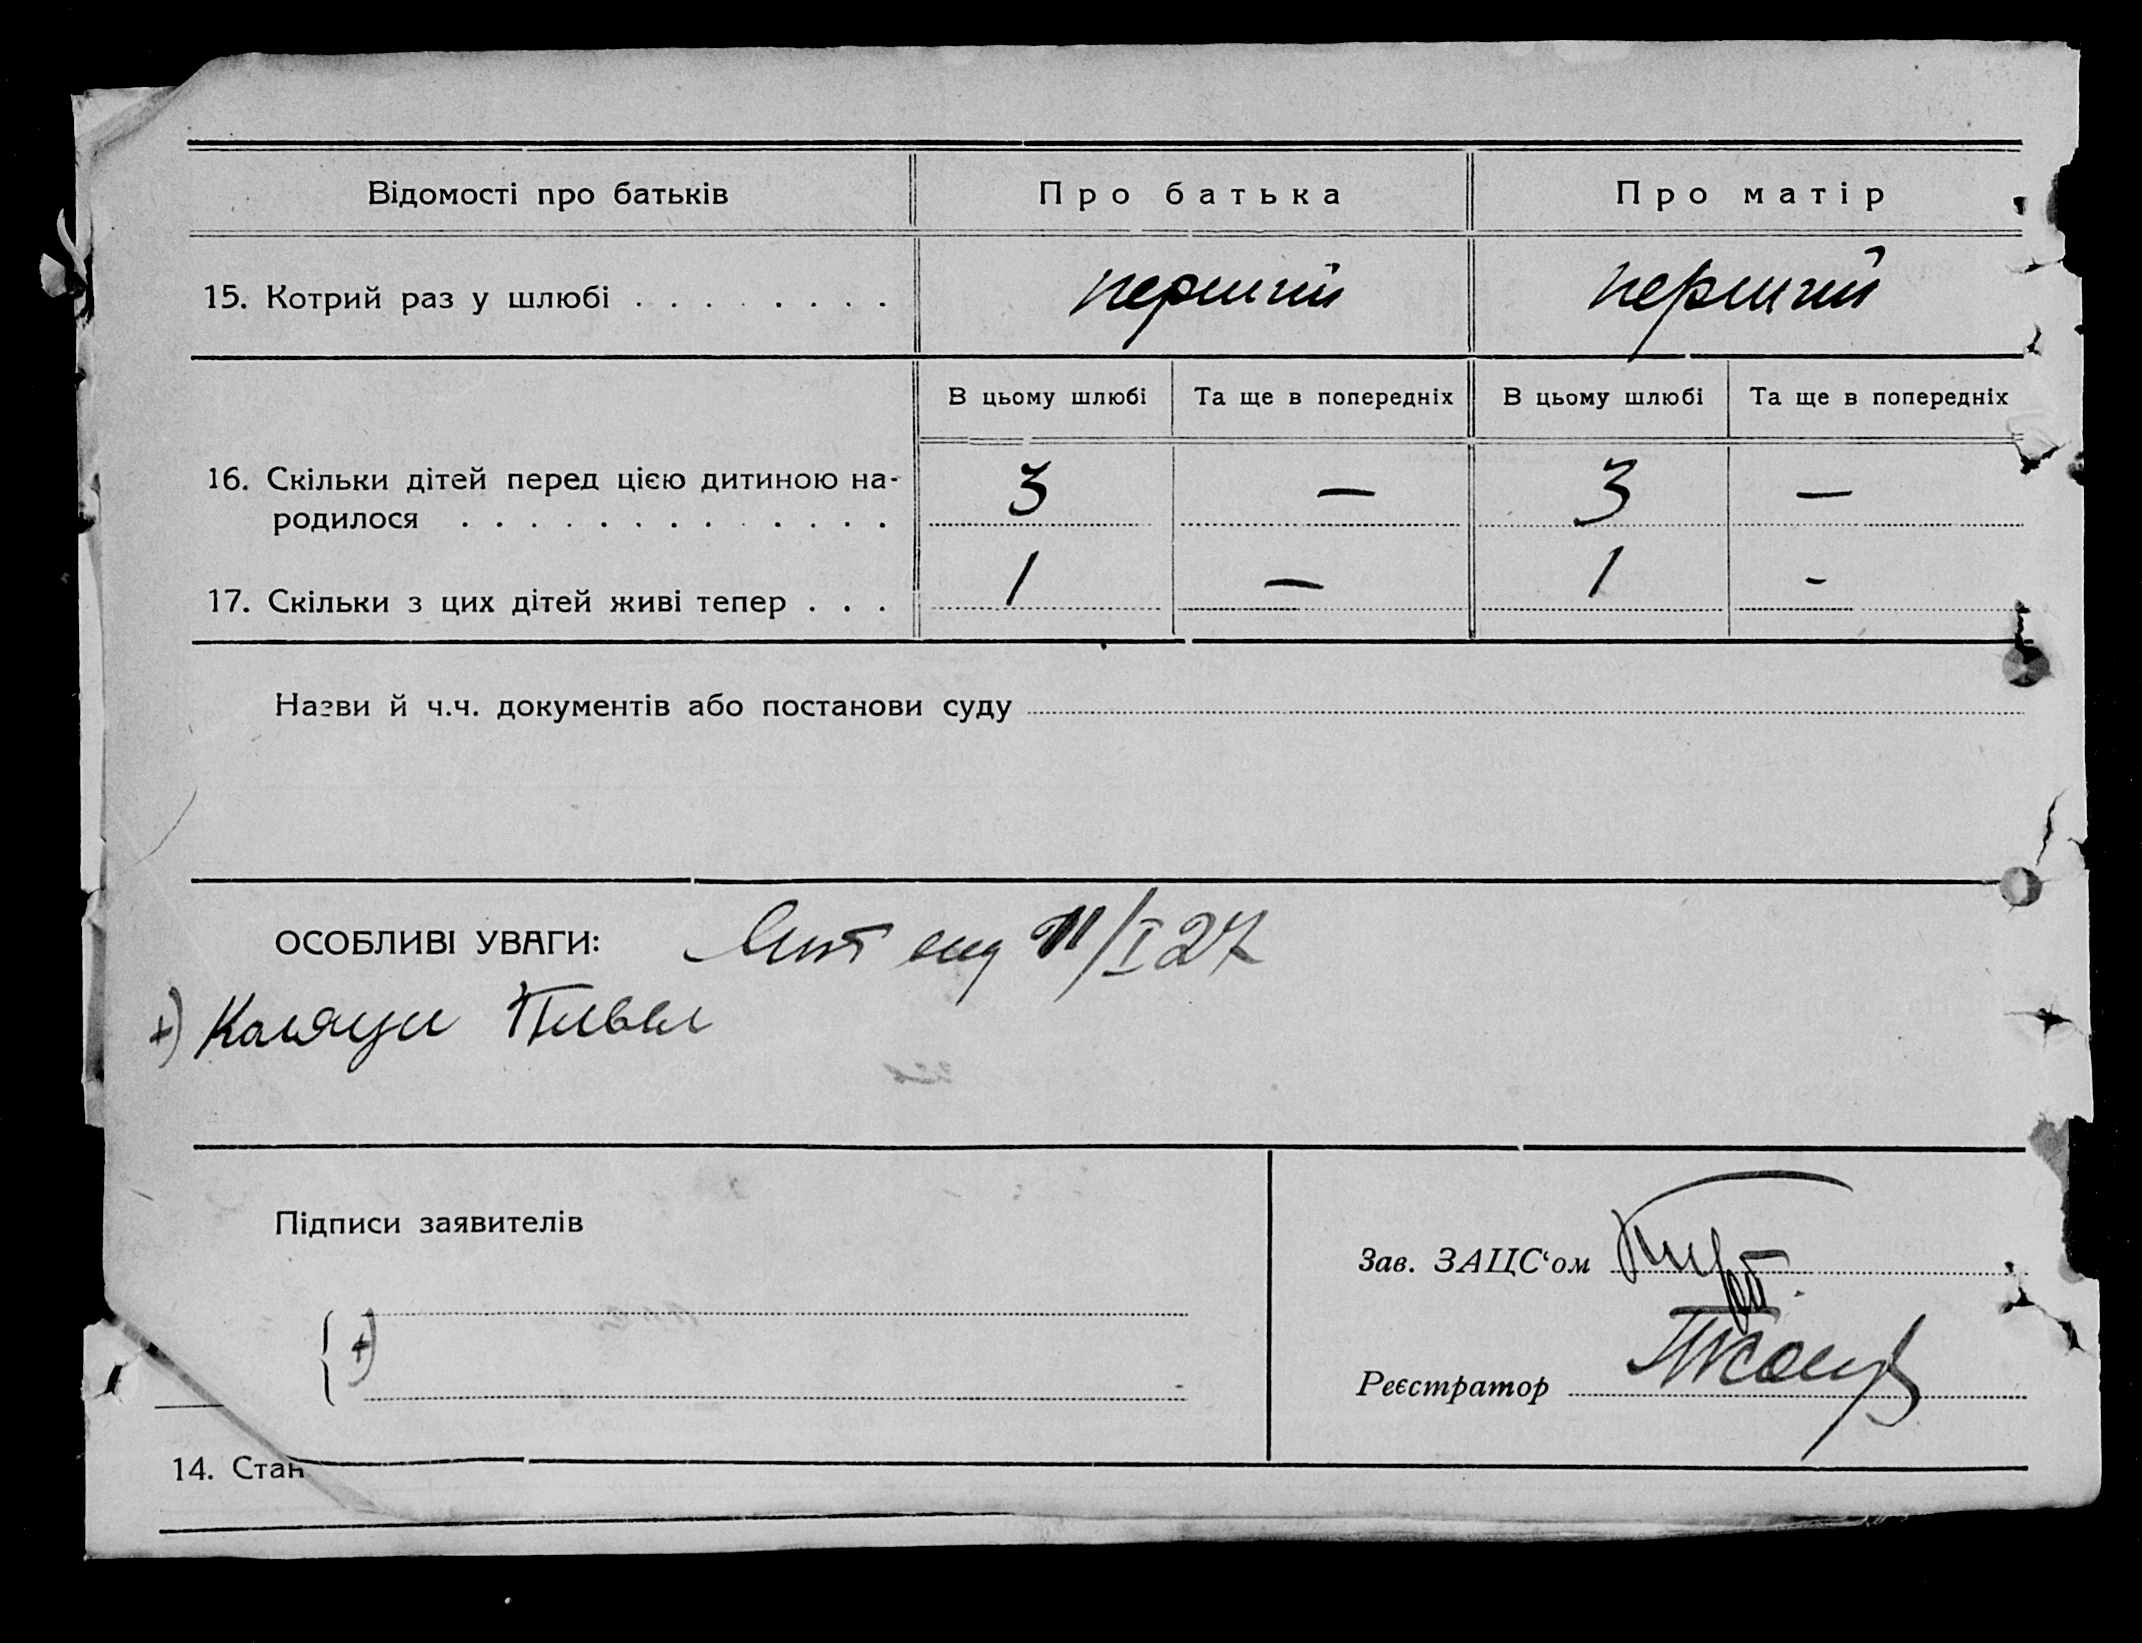 Відомості про батьків Про батька Про матір
15. Котрий раз у шлюбі . . . . . . . . перший перший
В цьому шлюбі Та ще в попередніх В цьому шлюбі Та ще в попередніх
16. Скільки дітей перед цією дитиною на-
родилося . . . . . . . . . . . . . 3 — 3 —
17. Скільки з цих дітей живі тепер . . . 1 — 1 -
Назви й ч.ч. документів або постанови суду
ОСОБЛИВІ УВАГИ: 11/I 27
+)
Підписи заявителів
Зав. ЗАЦС'ом
+)
Реєстратор
14. Стан